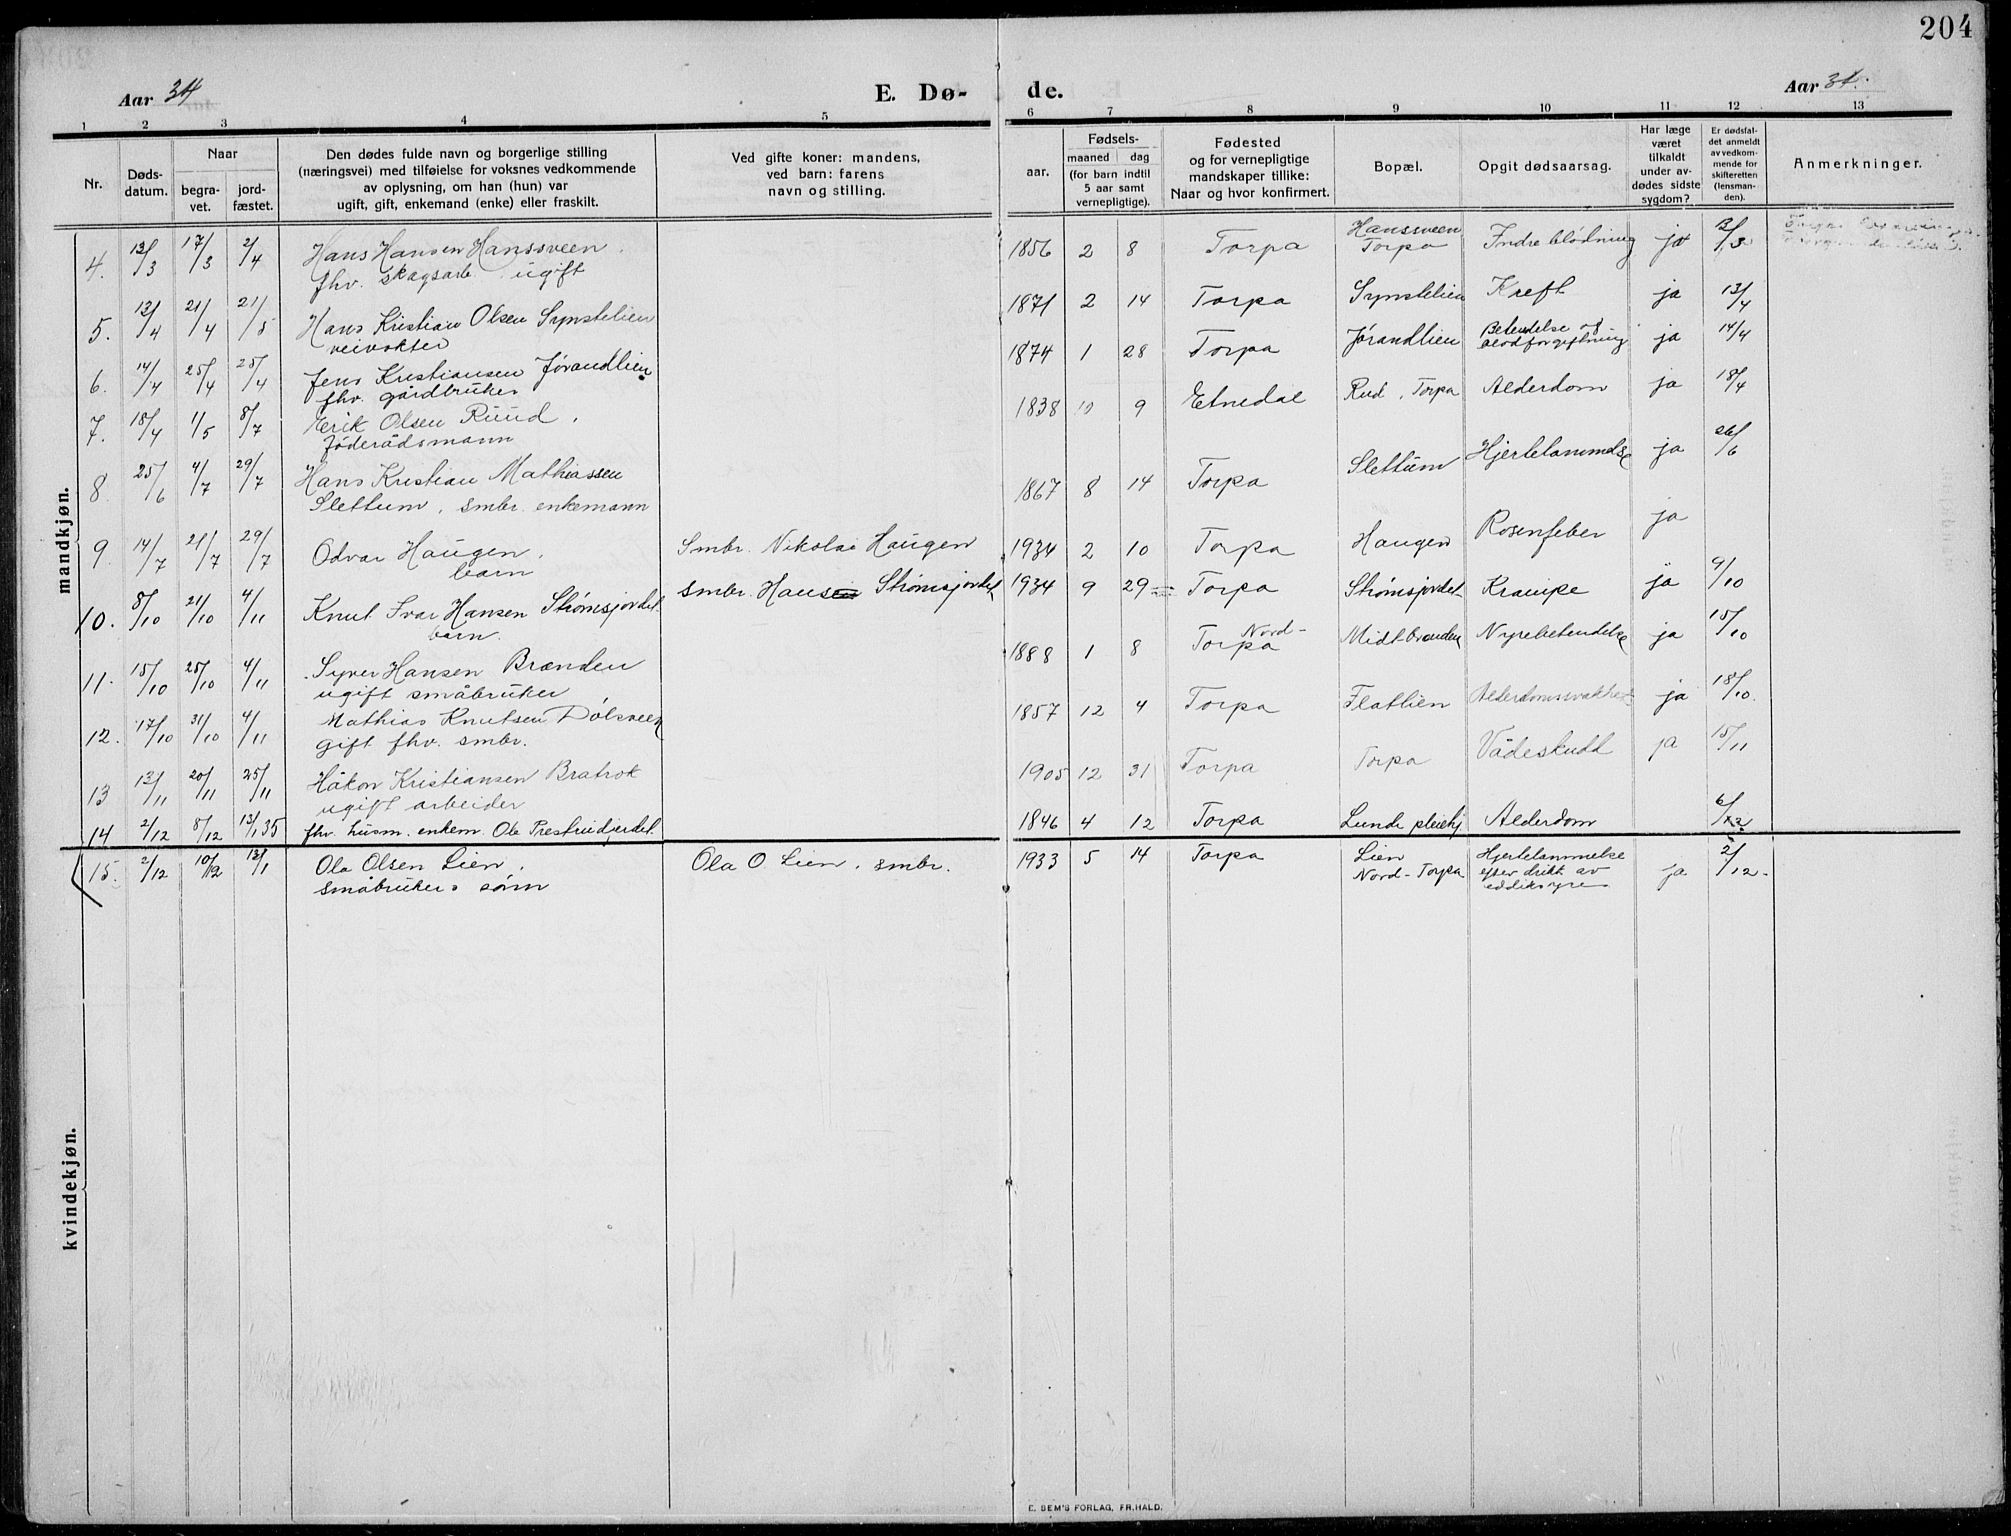 204
Aar 34
E. Dø-
de.
Aar 34.
1 2 3 4 5 6 7 8 9 10 11 12 13
Nr.
Døds-
datum.
Naar
begra-
vet.
jord-
fæstet.
Den dødes fulde navn og borgerlige stilling
(næringsvei) med tilføielse for voksnes vedkommende
av oplysning, om han (hun) var
ugift, gift, enkemand (enke) eller fraskilt.
Ved gifte koner: mandens,
ved barn: farens
navn og stilling.
aar.
Fødsels-
maaned dag
(for barn indtil
5 aar samt
vernepligtige).
Fødested
og for vernepligtige
mandskaper tillike:
Naar og hvor konfirmert.
Bopæl.
Opgit dødsaarsag.
Har læge
været
tilkaldt
under av-
dødes sidste
sygdom?
Er dødsfal-
det anmeldt
av vedkom-
mende for
skifteretten
(lensman-
den).
Anmerkninger.
mandkjøn.
4. 13/3 17/3 2/4 Hans Hansen Hanssveen 1856 2 8 Torpa Hanssveen Torpa Indre blødning ja
fhv. skogsarb. ugift
5. 13/4 21/4 21/5 Hans Kristian Olsen Synstelien 1871 2 14 Torpa Synstelien Kreft ja 13/4
veivokter
6. 14/4 25/4 25/4 Jens Kristiansen Jørandlien 1874 1 28 Torpa Jørandlien Betendelse og blodforgiftning ja 14/4
fhv. gårdbruker
7. 18/4 1/5 8/7 Erik Olsen Ruud. 1838 10 9 Etnedal Rud, Torpa Alderdom ja 18/4
føderådsmann
8. 25/6 4/7 29/7 Hans Kristian Mathiassen 1867 8 14 Torpa Slettum Hjertelammelse ja 26/6
Slettum, smbr. enkemann
9. 14/7 21/7 29/7 Odvar Haugen. Smbr. Nikolai Haugen 1934 2 10 Torpa Haugen Rosenfeber ja
barn
10. 8/10 21/10 4/11 Knut Ivar Hansen Strømsjordet Smbr. Hans Strømsjordet 1934 9 29 Torpa Strømsjordet Krampe ja 9/10
barn.
11. 15/10 25/10 4/11 Syver Hansen Brænden 1888 1 8 Nord-Torpa Midt-brænden Nyrebetendelse ja 15/10
ugift småbruker
12. 17/10 31/10 4/11 Mathias Knutsen Dølsveen 1857 12 4 Torpa Flatlien Alderdomssvakhet ja 18/10
gift fhv. smbr.
13 13/11 20/11 25/11 Håkon Kristiansen Bratrok 1905 12 31 Torpa Torpa Vådeskudd ja 15/11
ugift arbeider
14 2/12 8/12 13/1 35 fhv. husm. enkem. Ole Prestrudjerdet 1846 4 12 Torpa Lunde pleiehj Alderdom 6/12
15. 2/12 10/12 13/1 Ola Olsen Lien. Ola O Lien, smbr. 1933 5 14 Torpa Lien Nord-Torpa Hjertelammelse efter drikk av eddiksyre ja 2/12
småbrukers sønn
kvindekjøn.
E. SEM'S FORLAG, FR.HALD.